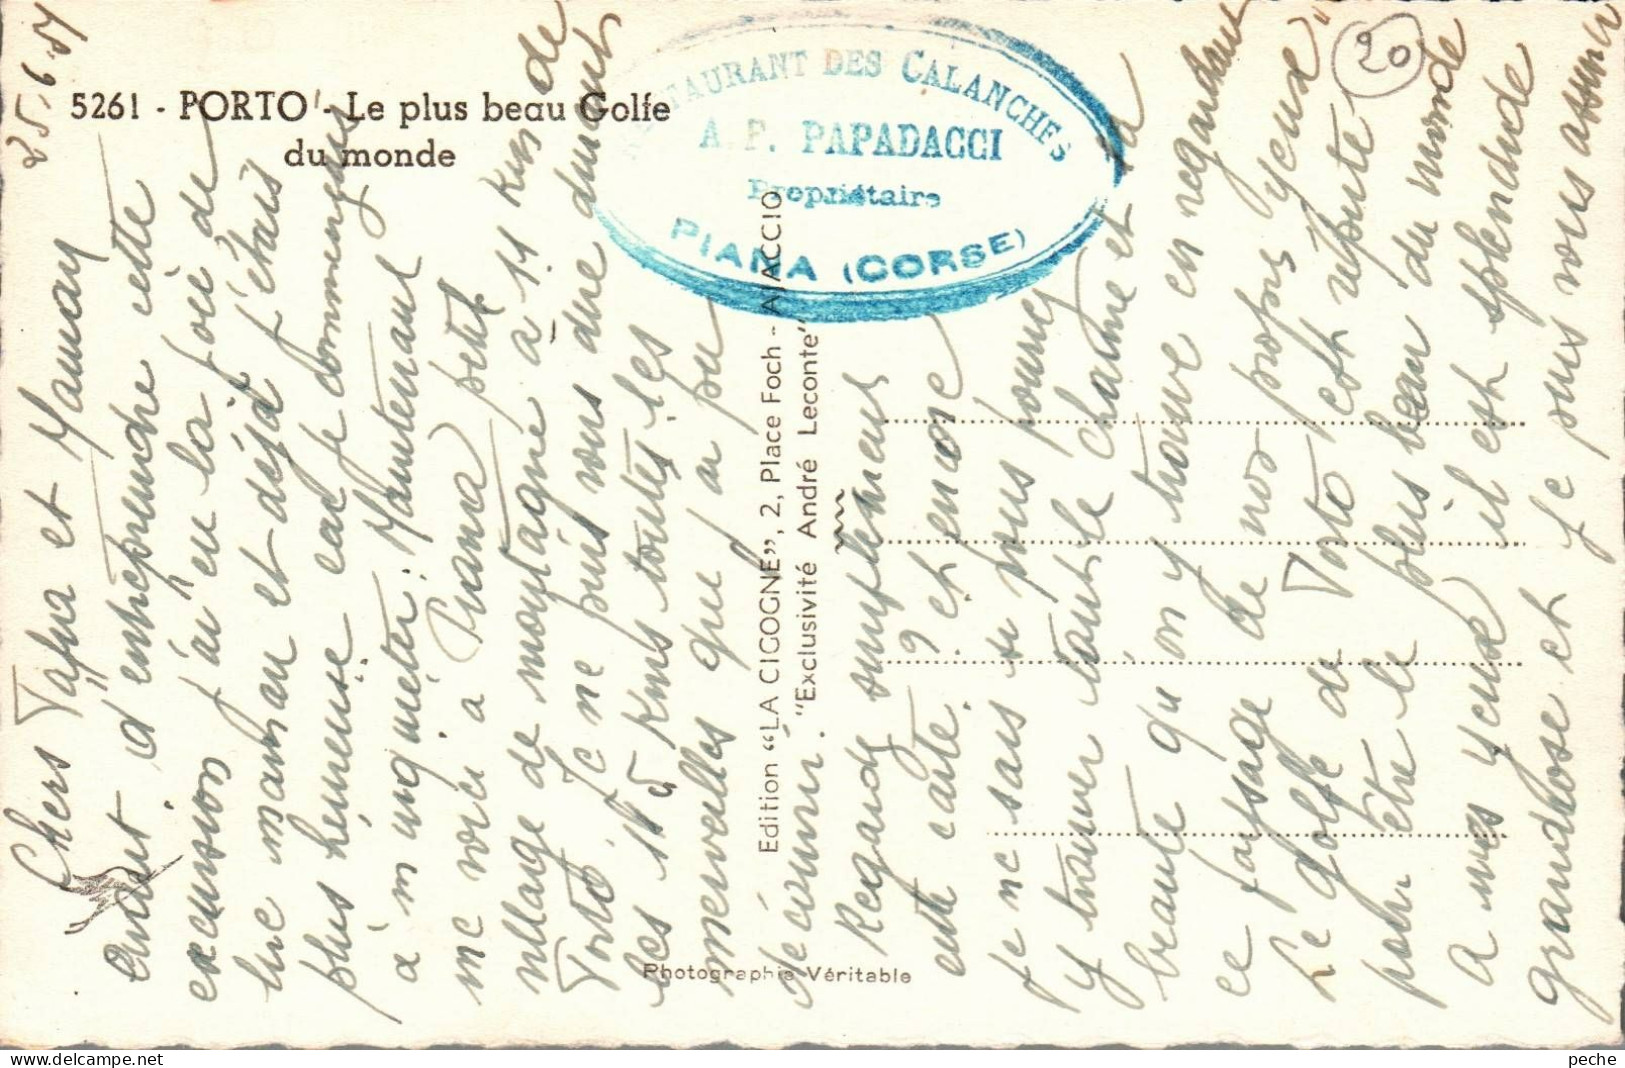 25.6.51
5261 - PORTO - Le plus beau Golfe
du monde
RESTAURANT DES CALANCHES
A. P. PAPADACCI
Propriétaire
PIANA (CORSE)
20
Edition "LA CICOGNE", 2, Place Foch - AJACCIO
"Exclusivité André Leconte"
Photographie Véritable
Chers Papa et Maman
Avant d'entreprendre cette
excursion j'ai eu la joie de
lire maman et déjà j'étais
plus heureuse car je commençais
à m'inquiéter. Maintenant
me voici à Piana petit
village de montagne à 11 Kms de
Porto. Je ne puis vous dire durant
les 115 Kms toutes les
merveilles que j'ai pu
découvrir.
Regardez simplement
cette carte et encore
je ne sais si vous pourrez
y trouver tout le charme et la
beauté qu'on y trouve en regardant
ce paysage de nos propres yeux
Le golfe de Porto est réputé
pour être le plus beau du monde
A mes yeux il est splendide
grandiose et je puis vous assurer
peche